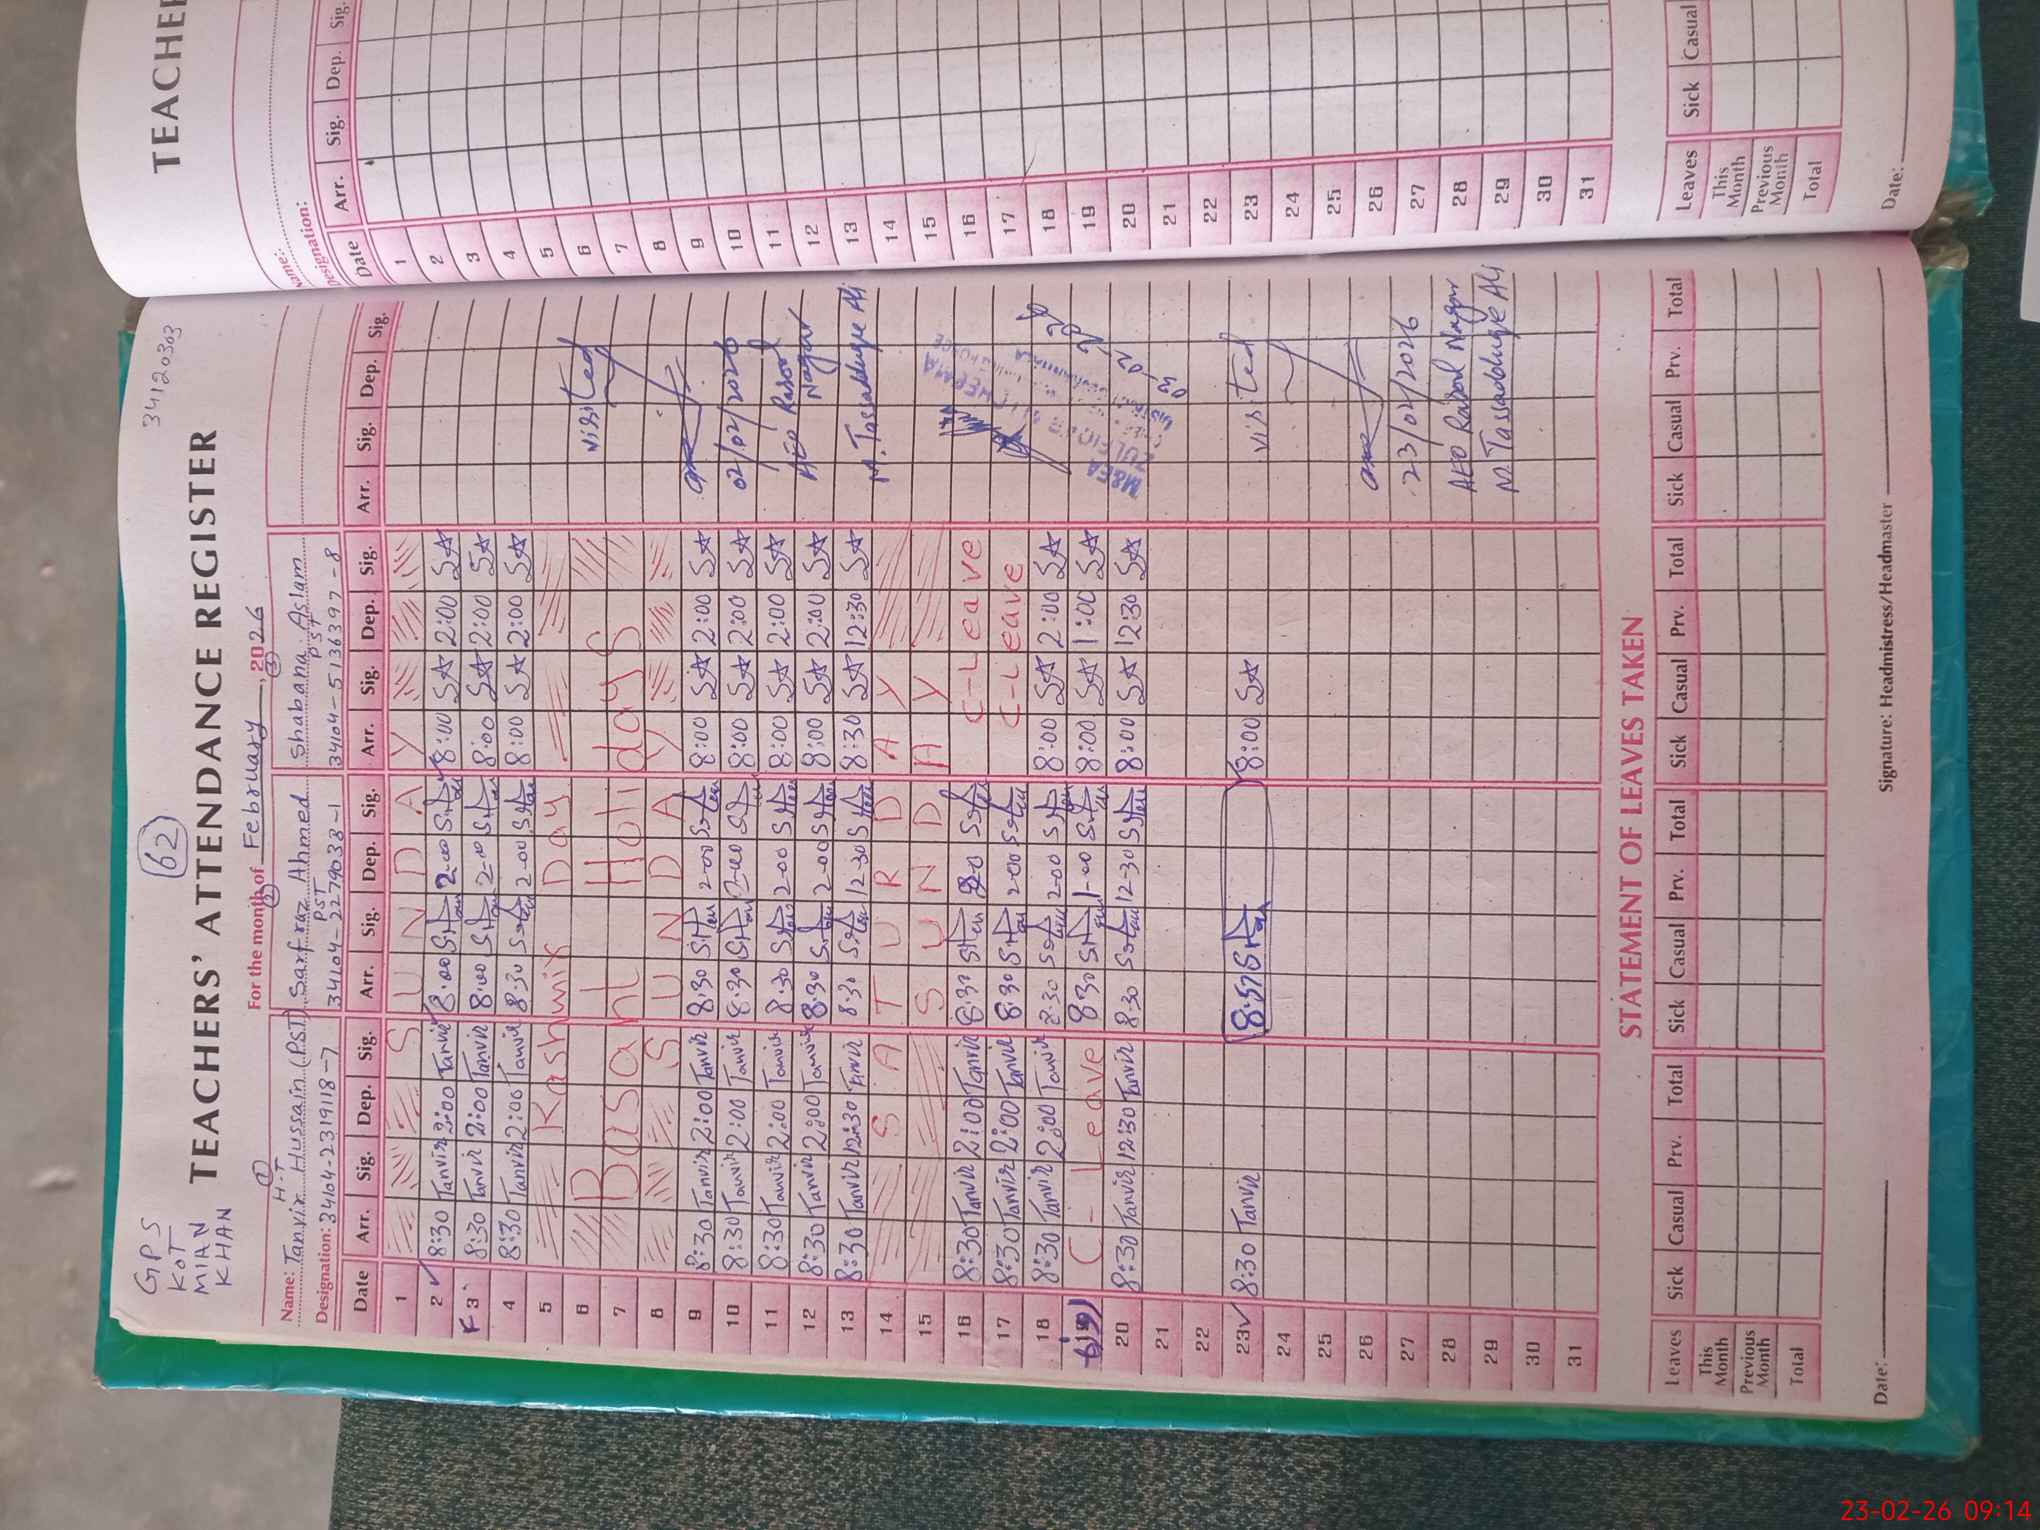 GPS
KOT
MIAN
KHAN
62
34120303
TEACHERS' ATTENDANCE REGISTER
For the month of February, 2026
1 2 3
Name: Tanvir Hussain (PST) Sarfraz Ahmed Shabana Aslam
H-T PST PST
Designation: 34104-2319118-7 34104-2279038-1 34104-5136397-8
Date Arr. Sig. Dep. Sig. Arr. Sig. Dep. Sig. Arr. Sig. Dep. Sig. Arr. Sig. Dep. Sig.
1 S U N D A Y
2 8:30 Tanvir 2:00 Tanvir 8:00 2:00 8:00 2:00
3 8:30 Tanvir 2:00 Tanvir 8:00 2:00 8:00 2:00
4 8:30 Tanvir 2:00 Tanvir 8:30 2:00 8:00 2:00
5 Kashmir Day
6 visited
7 Basant Holidays
8 S U N D A Y
9 8:30 Tanvir 2:00 Tanvir 8:30 2:00 8:00 2:00
10 8:30 Tanvir 2:00 Tanvir 8:30 2:00 8:00 2:00 02/02/2026
11 8:30 Tanvir 2:00 Tanvir 8:30 2:00 8:00 2:00 AEO Rasool
12 8:30 Tanvir 2:00 Tanvir 8:30 2:00 8:00 2:00 Nagar
13 8:30 Tanvir 12:30 Tanvir 8:30 12:30 8:30 12:30 M. Tassadduge Ali
14 S A T U R D A Y
15 S U N D A Y
16 8:30 Tanvir 2:00 Tanvir 8:30 C-Leave
17 8:30 Tanvir 2:00 Tanvir 8:30 2:00 C-Leave
18 8:30 Tanvir 2:00 Tanvir 8:30 2:00 8:00 2:00
19 C-Leave 8:30 1:00 8:00 1:00
20 8:30 Tanvir 12:30 Tanvir 8:30 12:30 8:00 12:30
M&EA
ZULFIQAR ALI CHEEMA
21
22
23 8:30 Tanvir 8:00 visited
24
25
26
27 23/02/2026
28 AEO Rasool Nagar
29 M Tassadduge Ali
30
31
STATEMENT OF LEAVES TAKEN
Leaves Sick Casual Prv. Total Sick Casual Prv. Total Sick Casual Prv. Total Sick Casual Prv. Total
This Month
Previous Month
Total
Date: Signature: Headmistress/Headmaster
TEACHE
Name:
Designation:
Date Arr. Sig. Dep. Sig.
1
2
3
4
5
6
7
8
9
10
11
12
13
14
15
16
17
18
19
20
21
22
23
24
25
26
27
28
29
30
31
Leaves Sick Casual
This Month
Previous Month
Total
Date:
23-02-26 09:14